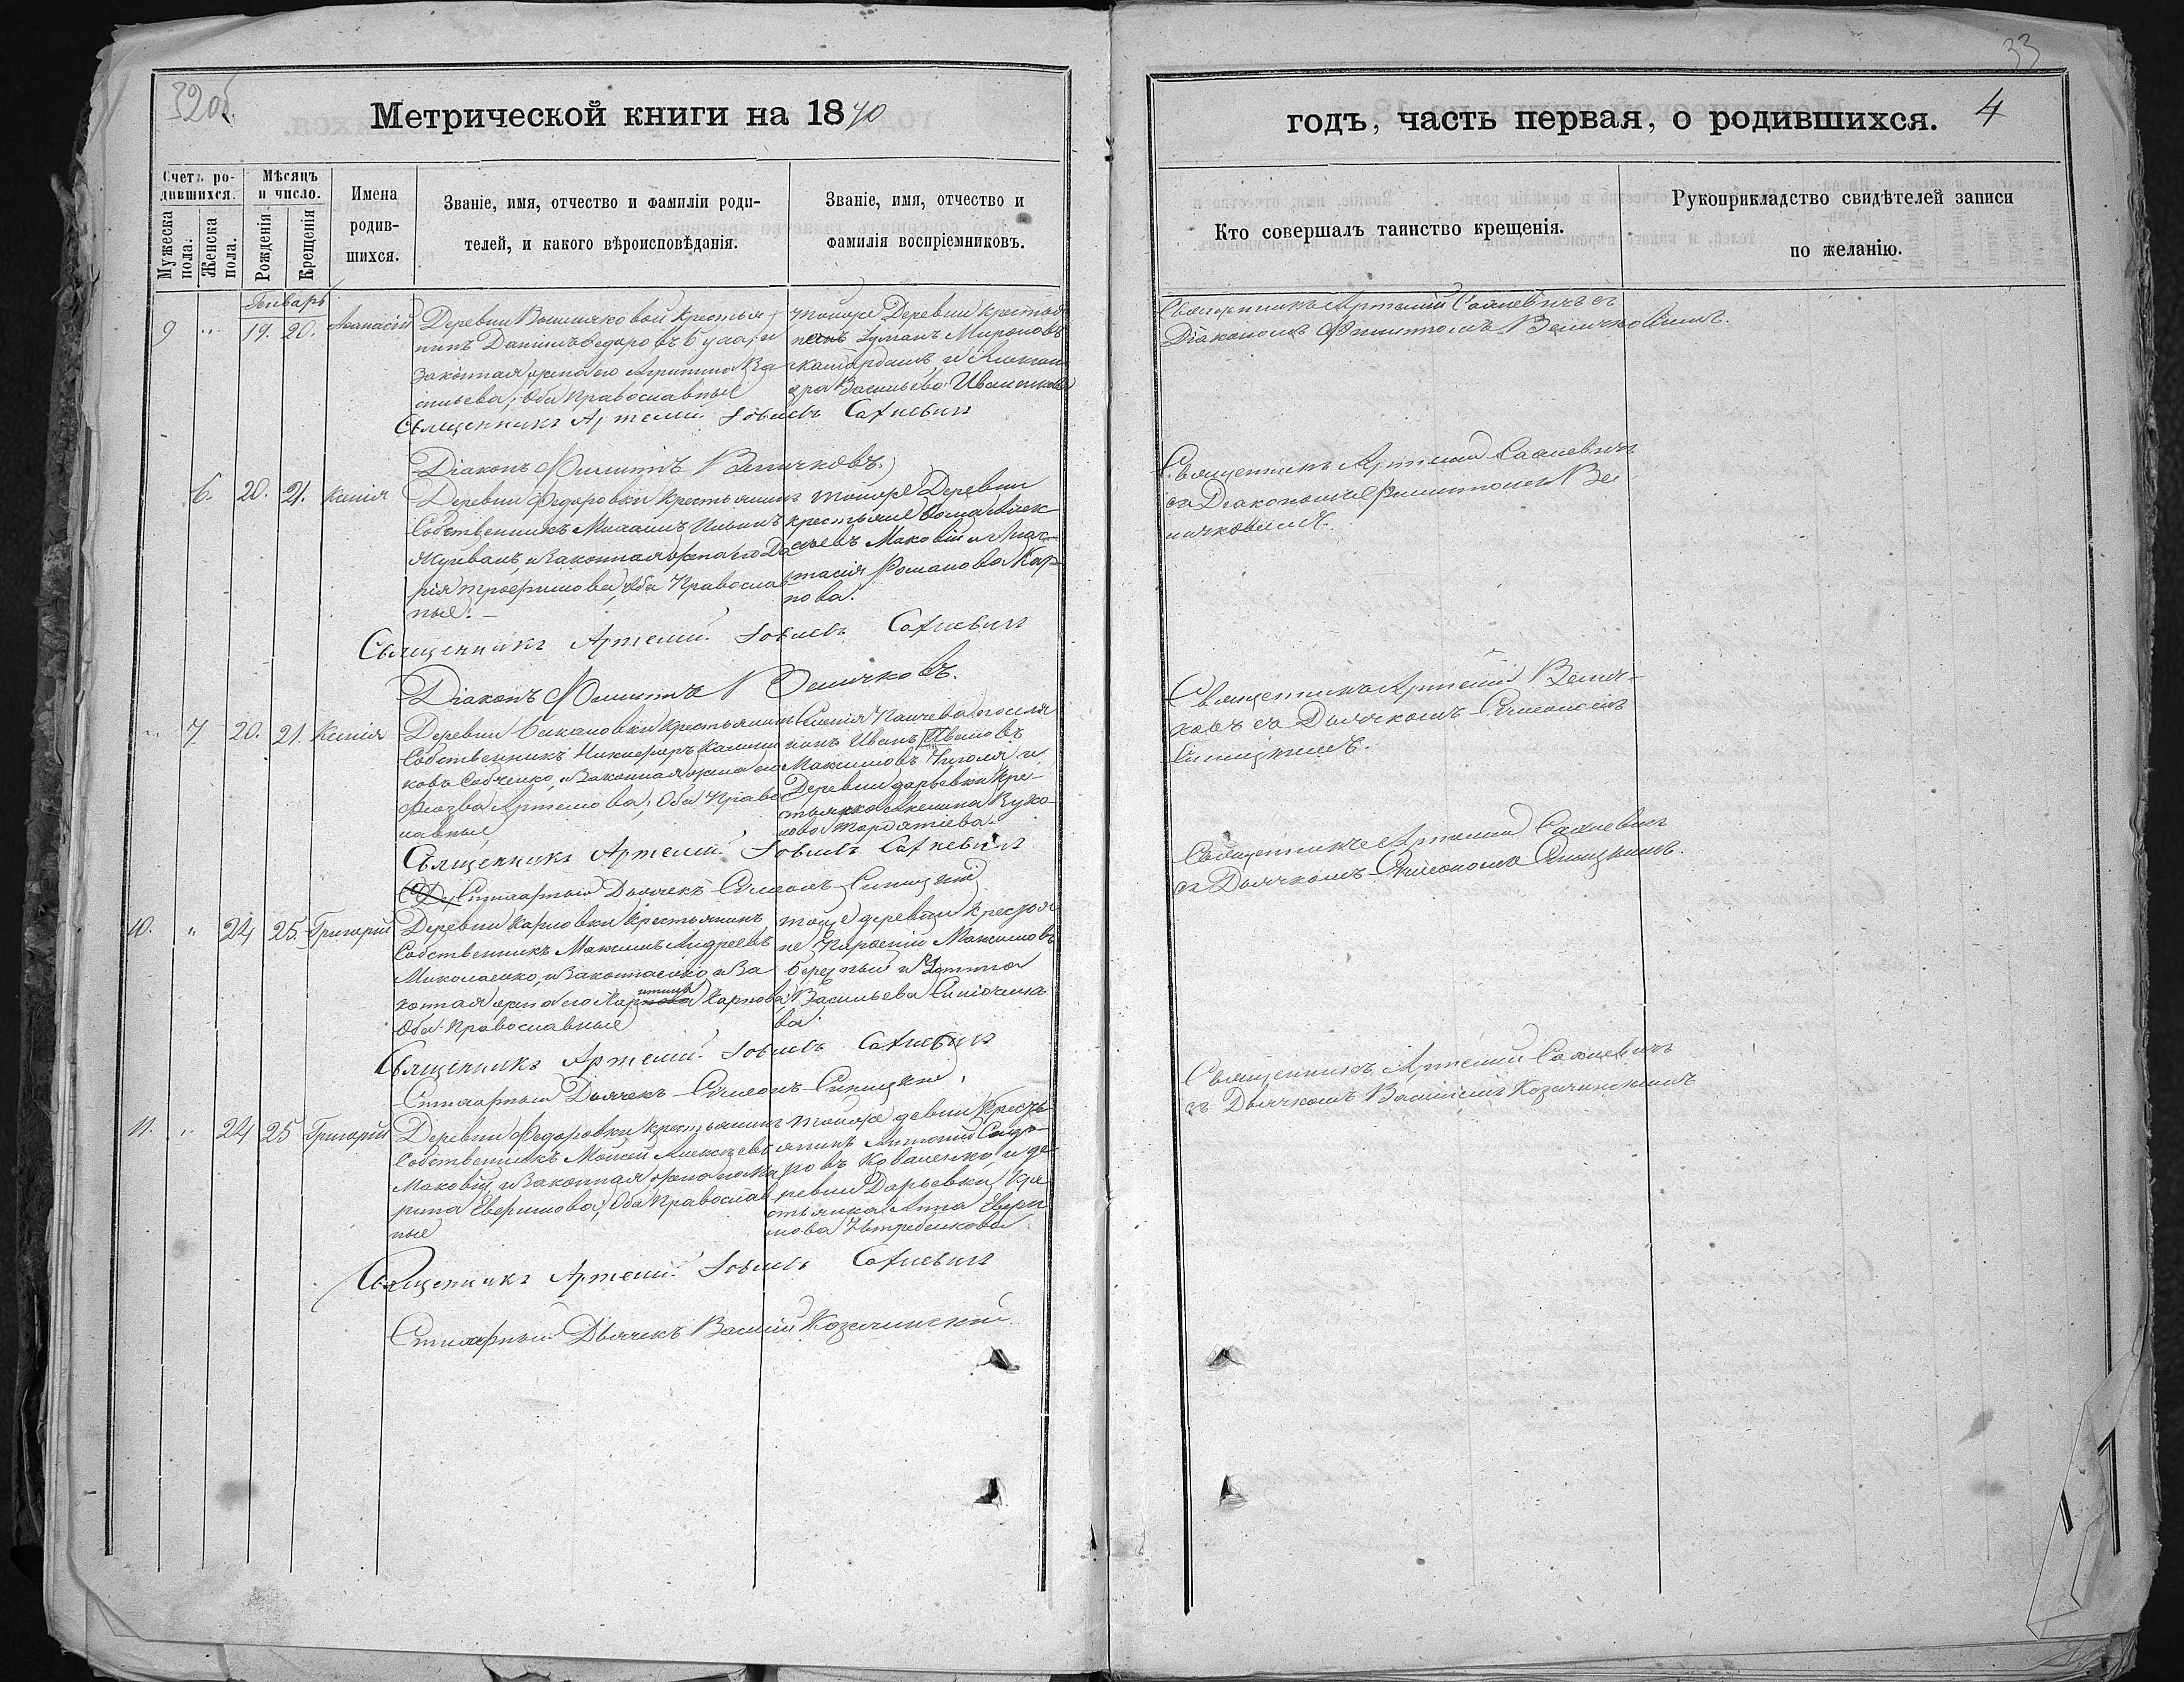 32об.
Метрической книги на 1870
Счетъ ро-
дившихся.
Мѣсяцъ
и число.
Мужеска
пола.
Женска
пола.
Рожденія
Крещенія
Имена
родив-
шихся.
Званіе, имя, отчество и фамиліи роди-
телей, и какого вѣроисповѣданія.
Званіе, имя, отчество и
фамилія воспріемниковъ.
Генварь
9 " 19. 20. Аѳанасій
Деревни крестья-
нинъ Даніилъ Федоровъ и
законная жена его Ва
сильева; Оба Православные
тойже Деревни крестья
Мироновъ
и Алексан
дра Васильева
Священникъ Артемій Іовлевъ Сахневичъ
Діаконъ Филиппъ Величковъ.
6. 20. 21. Ксенія
Деревни Федоровки Крестьянинъ
Собственникъ Михаилъ Ильинъ
и законная жена его Да
рія Трофимова, Оба Православ
ные. —
тойже Деревни
крестьяне Ѳома Алек
сѣевъ Маковій и Анас-
тасія Романова Кар
пова.
Священникъ Артемій Іовлевъ Сахневичъ
Діаконъ Филиппъ Величковъ.
" 7. 20. 21. Ксенія
Деревни Крестьянинъ
Собственникъ Никифоръ
и Законная жена его
Артемова; Оба Право
славные
поселя
нинъ Иванъ Ивановъ
Максимовъ и
Деревни Дарьевки Кре-
стьянка Акелина
Священникъ Артемій Іовлевъ Сахневичъ
Стихарный Дьячекъ Симеонъ Синицкій
10. " 24 25. Григорій
Деревни Карповки Крестьянинъ
Собственникъ Максимъ Андреевъ
Миколаенко, и Законная и За
конная жена его Карпова
Оба Православные
тойже деревни Крестья
не Парфеній Максимовъ
Бережный и
Васильева
ва
Священникъ Артемій Іовлевъ Сахневичъ
Стихарный Дьячекъ Симеонъ Синицкій.
11. " 24 25 Григорій
Деревни Федоровки Крестьянинъ
Собственникъ Моисей Алексѣевъ
Маковій и Законная жена его Ма
рина Ефимова; Оба Православ
ные
тойже девни Кресть
янинъ Антоній Сидо-
ровъ Коваленко, и де
ревни Дарьевки Кре
стьянка Анна
мова
Священникъ Артемій Іовлевъ Сахневичъ
Стихарный Дьячекъ Василій Козачинскій
33
годъ, часть первая, о родившихся. 4
Кто совершалъ таинство крещенія.
Рукоприкладство свидѣтелей записи
по желанію.
Священникъ Артемій Сахневичъ съ
Діакономъ Филиппомъ Величковымъ.
Священникъ Артемій Сахневичъ
съ Діакономъ Филиппомъ Ве
личковымъ.
Священникъ Артемій Велич-
ковъ съ Дьячкомъ Симеономъ
Синицкимъ.
Священникъ Артемій Сахневичъ
съ Дьячкомъ Симеономъ Синицкимъ.
Священникъ Артемій Сахневичъ
съ Дьячкомъ Василіемъ Козачинскимъ